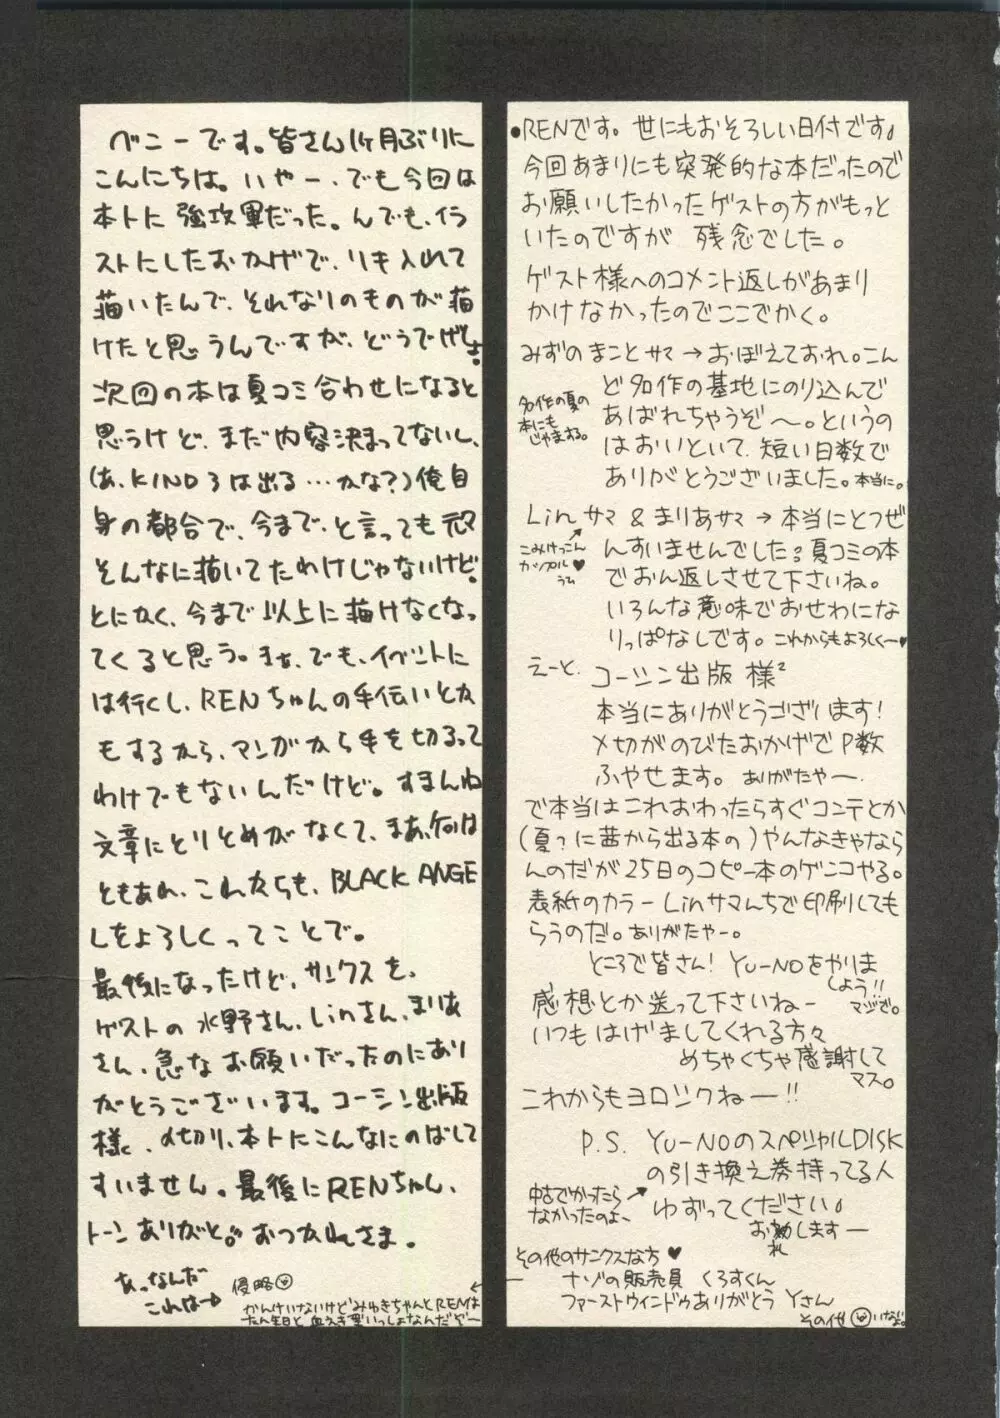 ベニーです。皆さん1ヶ月ぶりに
こんにちは。いやー、でも今回は
本トに強攻軍だった。んでも、イラ
ストにしたおかげで、リキ入れて
描いたんで、それなりのものが描
けたと思うんですが、どうでげしょ。
次回の本は夏コミ合わせになると
思うけど、まだ内容決まってないし、
(あ、KIND3は出る…かな?)俺自
身の都合で、今まで、と言っても元々
そんなに描いてたわけじゃないけど。
とにかく、今まで以上に描けなくなっ
てくると思う。まぁ、でも、イベントに
は行くし、RENちゃんの手伝いとか
もするから、マンガから手を切るって
わけでもないんだけど。すまんね
文章にとりとめがなくて、まあ、何は
ともあれ、これからも、BLACK ANGE
Lをよろしくってことで。
最後になったけど、サンクスを、
ゲストの水野さん、Linさん、まりあ
さん、急なお願いだったのにあり
がとうございます。コーシン出版
様、〆切り、本トにこんなにのばして
すいません。最後にRENちゃん、
トーンありがと。おつかれさま。
あっなんだ
これは→
侵略
かんけいないけどみゆきちゃんとRENは
たん生日と血えき型いっしょなんだぞー
●RENです。世にもおそろしい日付です。
今回あまりにも突発的な本だったので
お願いしたかったゲストの方がもっと
いたのですが 残念でした。
ゲスト様へのコメント返しがあまり
かけなかったのでここでかく。
みずのまことサマ→おぼえておれ。こん
ど名作の基地にのり込んで
あばれちゃうぞ〜。というの
はおいといて、短い日数で
ありがとうございました。本当に。
名作の夏の
本にも
じゃまする。
Linサマ&まりあサマ→本当にとつぜ
んすいませんでした。夏コミの本
でおん返しさせて下さいね。
いろんな意味でおせわにな
りっぱなしです。これからもよろしく〜♥
こみけっこん
カップル♥
うふ
えーと、コーシン出版 様²
本当にありがとうございます!
〆切がのびたおかげでP数
ふやせます。ありがたやー.
で本当はこれおわったらすぐコンテとか
(夏?に茜から出る本の)やんなきゃなら
んのだが25日のコピー本のゲンコやる。
表紙のカラーLinサマんちで印刷しても
らうのだ。ありがたやー。
ところで皆さん!YU-NOをやりま
しょう!!
マジで。
感想とか送って下さいねー
いつもはげましてくれる方々
めちゃくちゃ感謝して
マス。
これからもヨロシクねー!!
P.S. YU-NOのスペシャルDISK
の引き換え券持ってる人
ゆずってください。
お知れしますー
中古でかったら
なかったのよ、
その他のサンクスな方♥
ナゾの販売員 くろすくん
ファーストウインドゥありがとう Yさん
その他